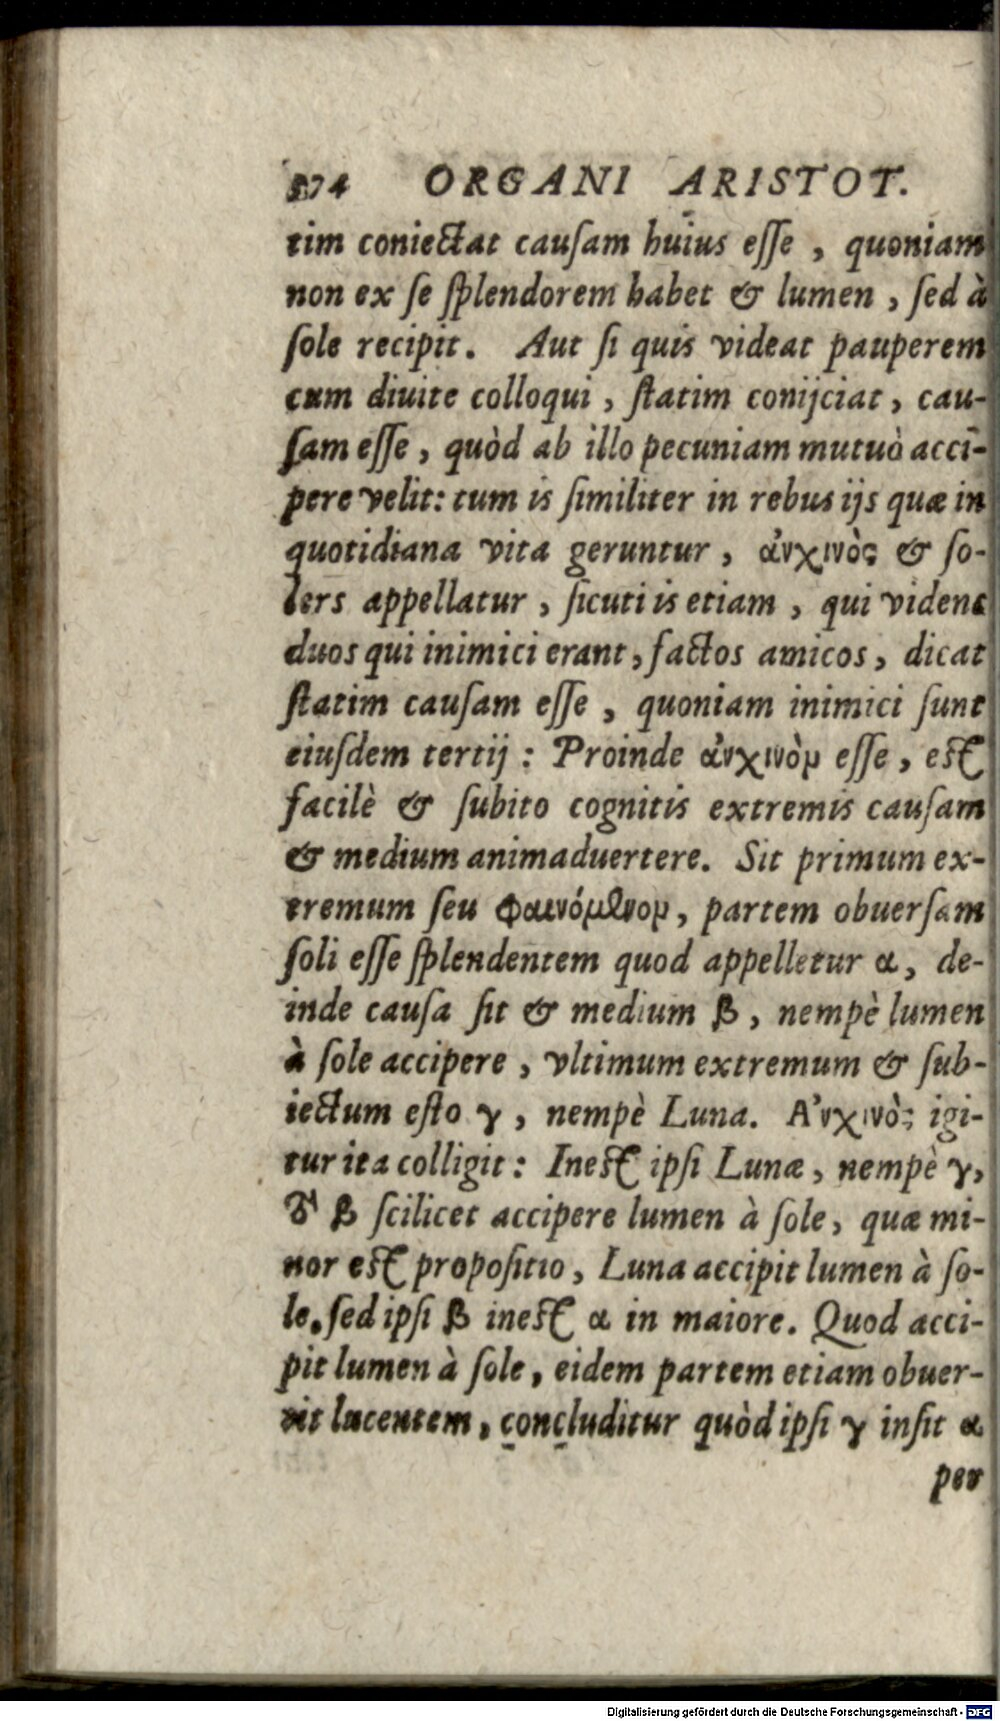 274 ORGANI ARISTOT.
tim coniectat causam huius esse, quoniam
non ex se splendorem habet & lumen, sed à
sole recipit. Aut si quis videat pauperem
cum diuite colloqui, statim conijciat, cau-
sam esse, quòd ab illo pecuniam mutuò acci-
pere velit: tum is similiter in rebus ijs quæ in
quotidiana vita geruntur, ἀνχινὸς & so-
lers appellatur, sicuti is etiam, qui videns
duos qui inimici erant, factos amicos, dicat
statim causam esse, quoniam inimici sunt
eiusdem tertij: Proinde ἀνχινὸν esse, est
facilè & subito cognitis extremis causam
& medium animaduertere. Sit primum ex-
tremum seu φαινόμενον, partem obuersam
soli esse splendentem quod appelletur α, de-
inde causa sit & medium β, nempè lumen
à sole accipere, vltimum extremum & sub-
iectum esto γ, nempè Luna. Ἀνχινὸς igi-
tur ita colligit: Inest ipsi Lunæ, nempè γ,
τὸ β scilicet accipere lumen à sole, quæ mi-
nor est propositio, Luna accipit lumen à so-
le. sed ipsi β inest α in maiore. Quod acci-
pit lumen à sole, eidem partem etiam obuer-
tit lucentem, concluditur quòd ipsi γ insit α
per
Digitalisierung gefördert durch die Deutsche Forschungsgemeinschaft - DFG